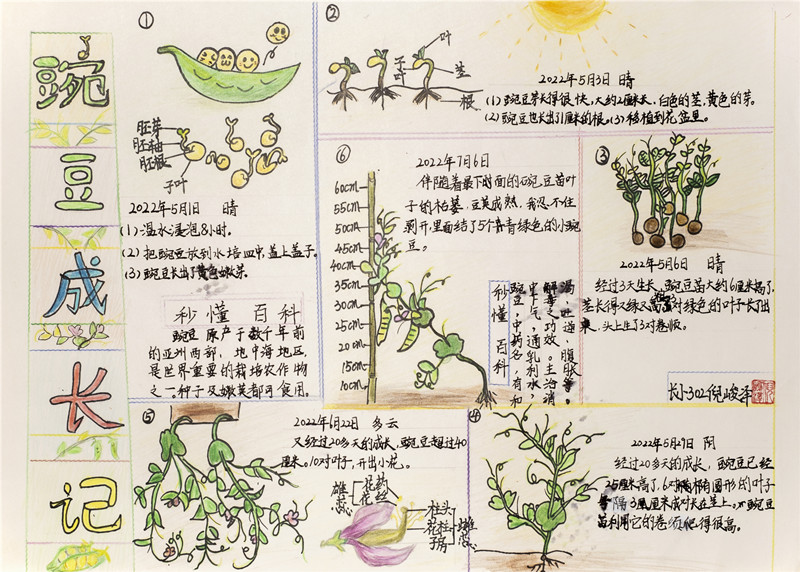 豌豆成长记
①
胚芽
胚轴
胚根
子叶
2022年5月1日 晴
(1)温水浸泡8小时。
(2)把豌豆放到水培皿中,盖上盖子。
(3)豌豆长出了黄色嫩芽。
秒懂百科
豌豆原产于数千年前
的亚洲西部、地中海地区,
是世界重要的栽培农作物
之一,种子及嫩荚都可食用。
②
子叶
叶
茎
根
2022年5月3日 晴
(1)豌豆芽长得很快,大约2厘米长,白色的茎,黄色的芽。
(2)豌豆也长出了1厘米的根。(3)移植到花盆里。
③
2022年5月6日 晴
经过3天生长,豌豆苗大约6厘米高了,
茎长得又绿又高,对绿色的叶子长了出
来,头上生了3对卷须。
长小302倪峻泽
④
2022年5月29日 阴
经过20多天的成长,豌豆已经
25厘米高了,6对椭圆形的叶子
隔3厘米成对长在茎上。豌豆
苗利用它的卷须爬得很高。
⑤
2022年6月22日 多云
又经过20多天的成长,豌豆超过40
厘米。10对叶子,开出小花。
雄蕊
花药
花丝
柱头
花柱
子房
雌蕊
⑥
2022年7月6日
伴随着最下面的豌豆苗叶
子的枯萎,豆荚成熟,我忍不住
剥开,里面结了5个青青绿色的小豌
豆。
60cm
55cm
50cm
45cm
40cm
35cm
30cm
25cm
20cm
15cm
10cm
秒懂百科
豌豆,中药名,有和
中下气,通乳利水,
解毒之功效。主治消
渴,吐逆,腹胀等。